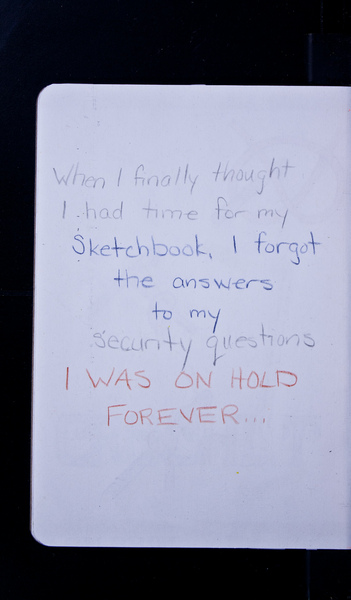 When I finally thought
I had time for my
Sketchbook, I forgot
the answers
to my
security questions
I WAS ON HOLD
FOREVER...